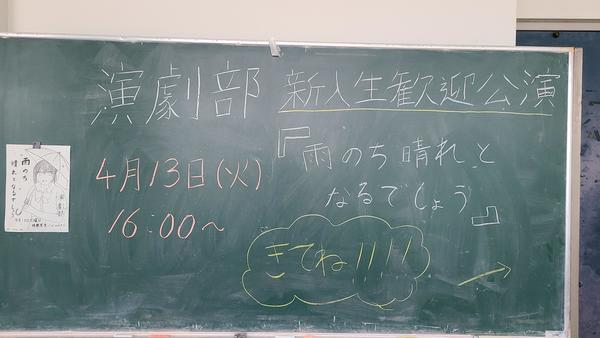 演劇部 新入生歓迎公演
4月13日(火)
16:00～
『雨のち晴れと
なるでしょう』
きてね!!!!
雨のち
晴れとなるでしょう